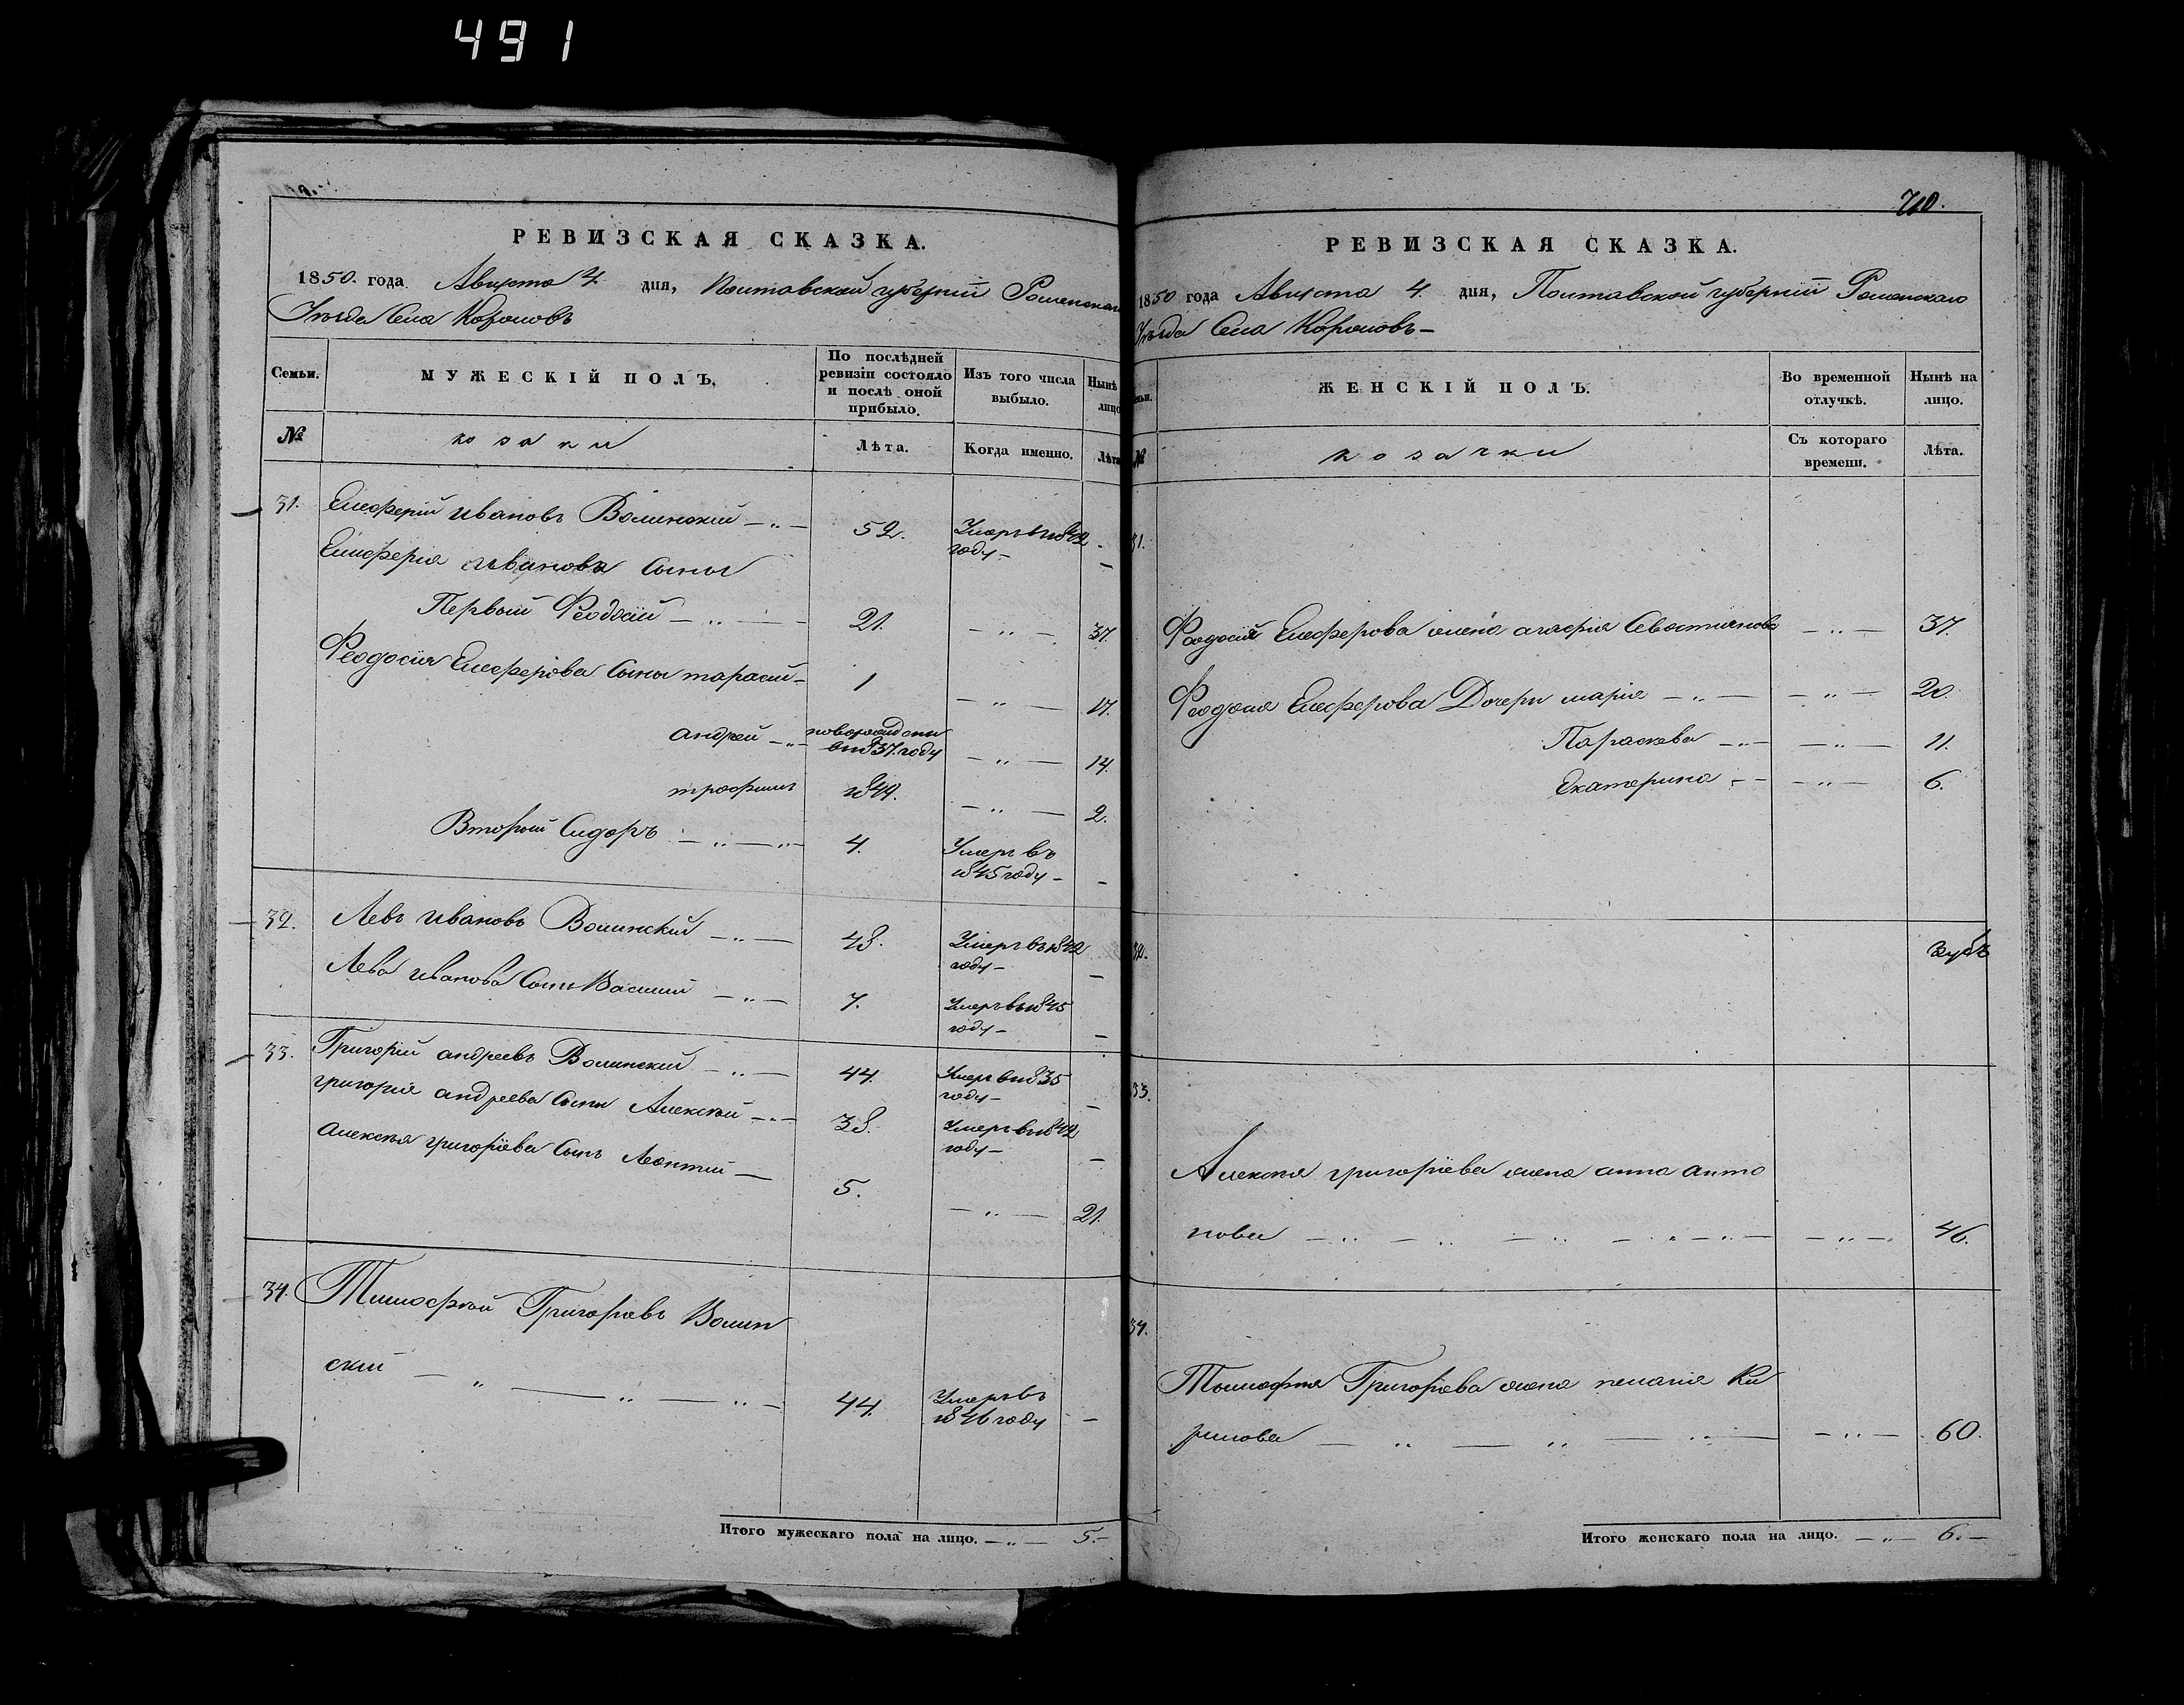 491
РЕВИЗСКАЯ СКАЗКА.
1850. года Августа 4. дня, Полтавской губерніи Роменскаго
Уѣзда Села Коровов
Семьи.
МУЖЕСКІЙ ПОЛЪ.
По послѣдней ревизіи состояло и послѣ оной прибыло.
Изъ того числа выбыло.
Нынѣ лицо
№
козаки
Лѣта.
Когда именно.
Лѣта
31. Елеферій Ивановъ Волинский 52. Умеръ въ 1842 году
Елиферія Иванова Сыны
Первый Феодосій 21. 37.
Феодосія Елеферова Сыны тарасій 1 17.
Андрей новорожденъ въ 1837. году 14.
трофимъ 1849. 2.
Второй Сидоръ 4. Умеръ въ 1845 году
32. Левъ Ивановъ Волинский 48. Умеръ въ 1842 году
Лева Иванова Сынъ Василій 7. Умеръ въ 1845 году
33. Григорій андреевъ Волинский 44. Умеръ въ 1835 году
григорія андреева Сынъ Алексѣй 38. Умеръ въ 1842 году
Алексѣя григоріева Сынъ Леонтій 5. 21.
34. Тимофѣй Григоріевъ Волин
ский 44. Умеръ въ 1846 году
Итого мужескаго пола на лицо. 5.
710.
РЕВИЗСКАЯ СКАЗКА.
1850 года Августа 4. дня, Полтавской губерніи Роменскаго
Уѣзда Села
№
ЖЕНСКІЙ ПОЛЪ.
Во временной отлучкѣ.
Нынѣ на лицо.
козачки
Съ котораго времени.
Лѣта.
31.
Феодосія Елеферова жена Севастіянова 37.
Феодосія Елеферова Дочери марія 20.
Параскева 11.
Екатерина 6.
32.
33.
Алексѣя григоріева жена анна анто
нова 46.
34.
Тимофѣя Григоріева жена пелагія Ки
рилова 60.
Итого женскаго пола на лицо. 6.